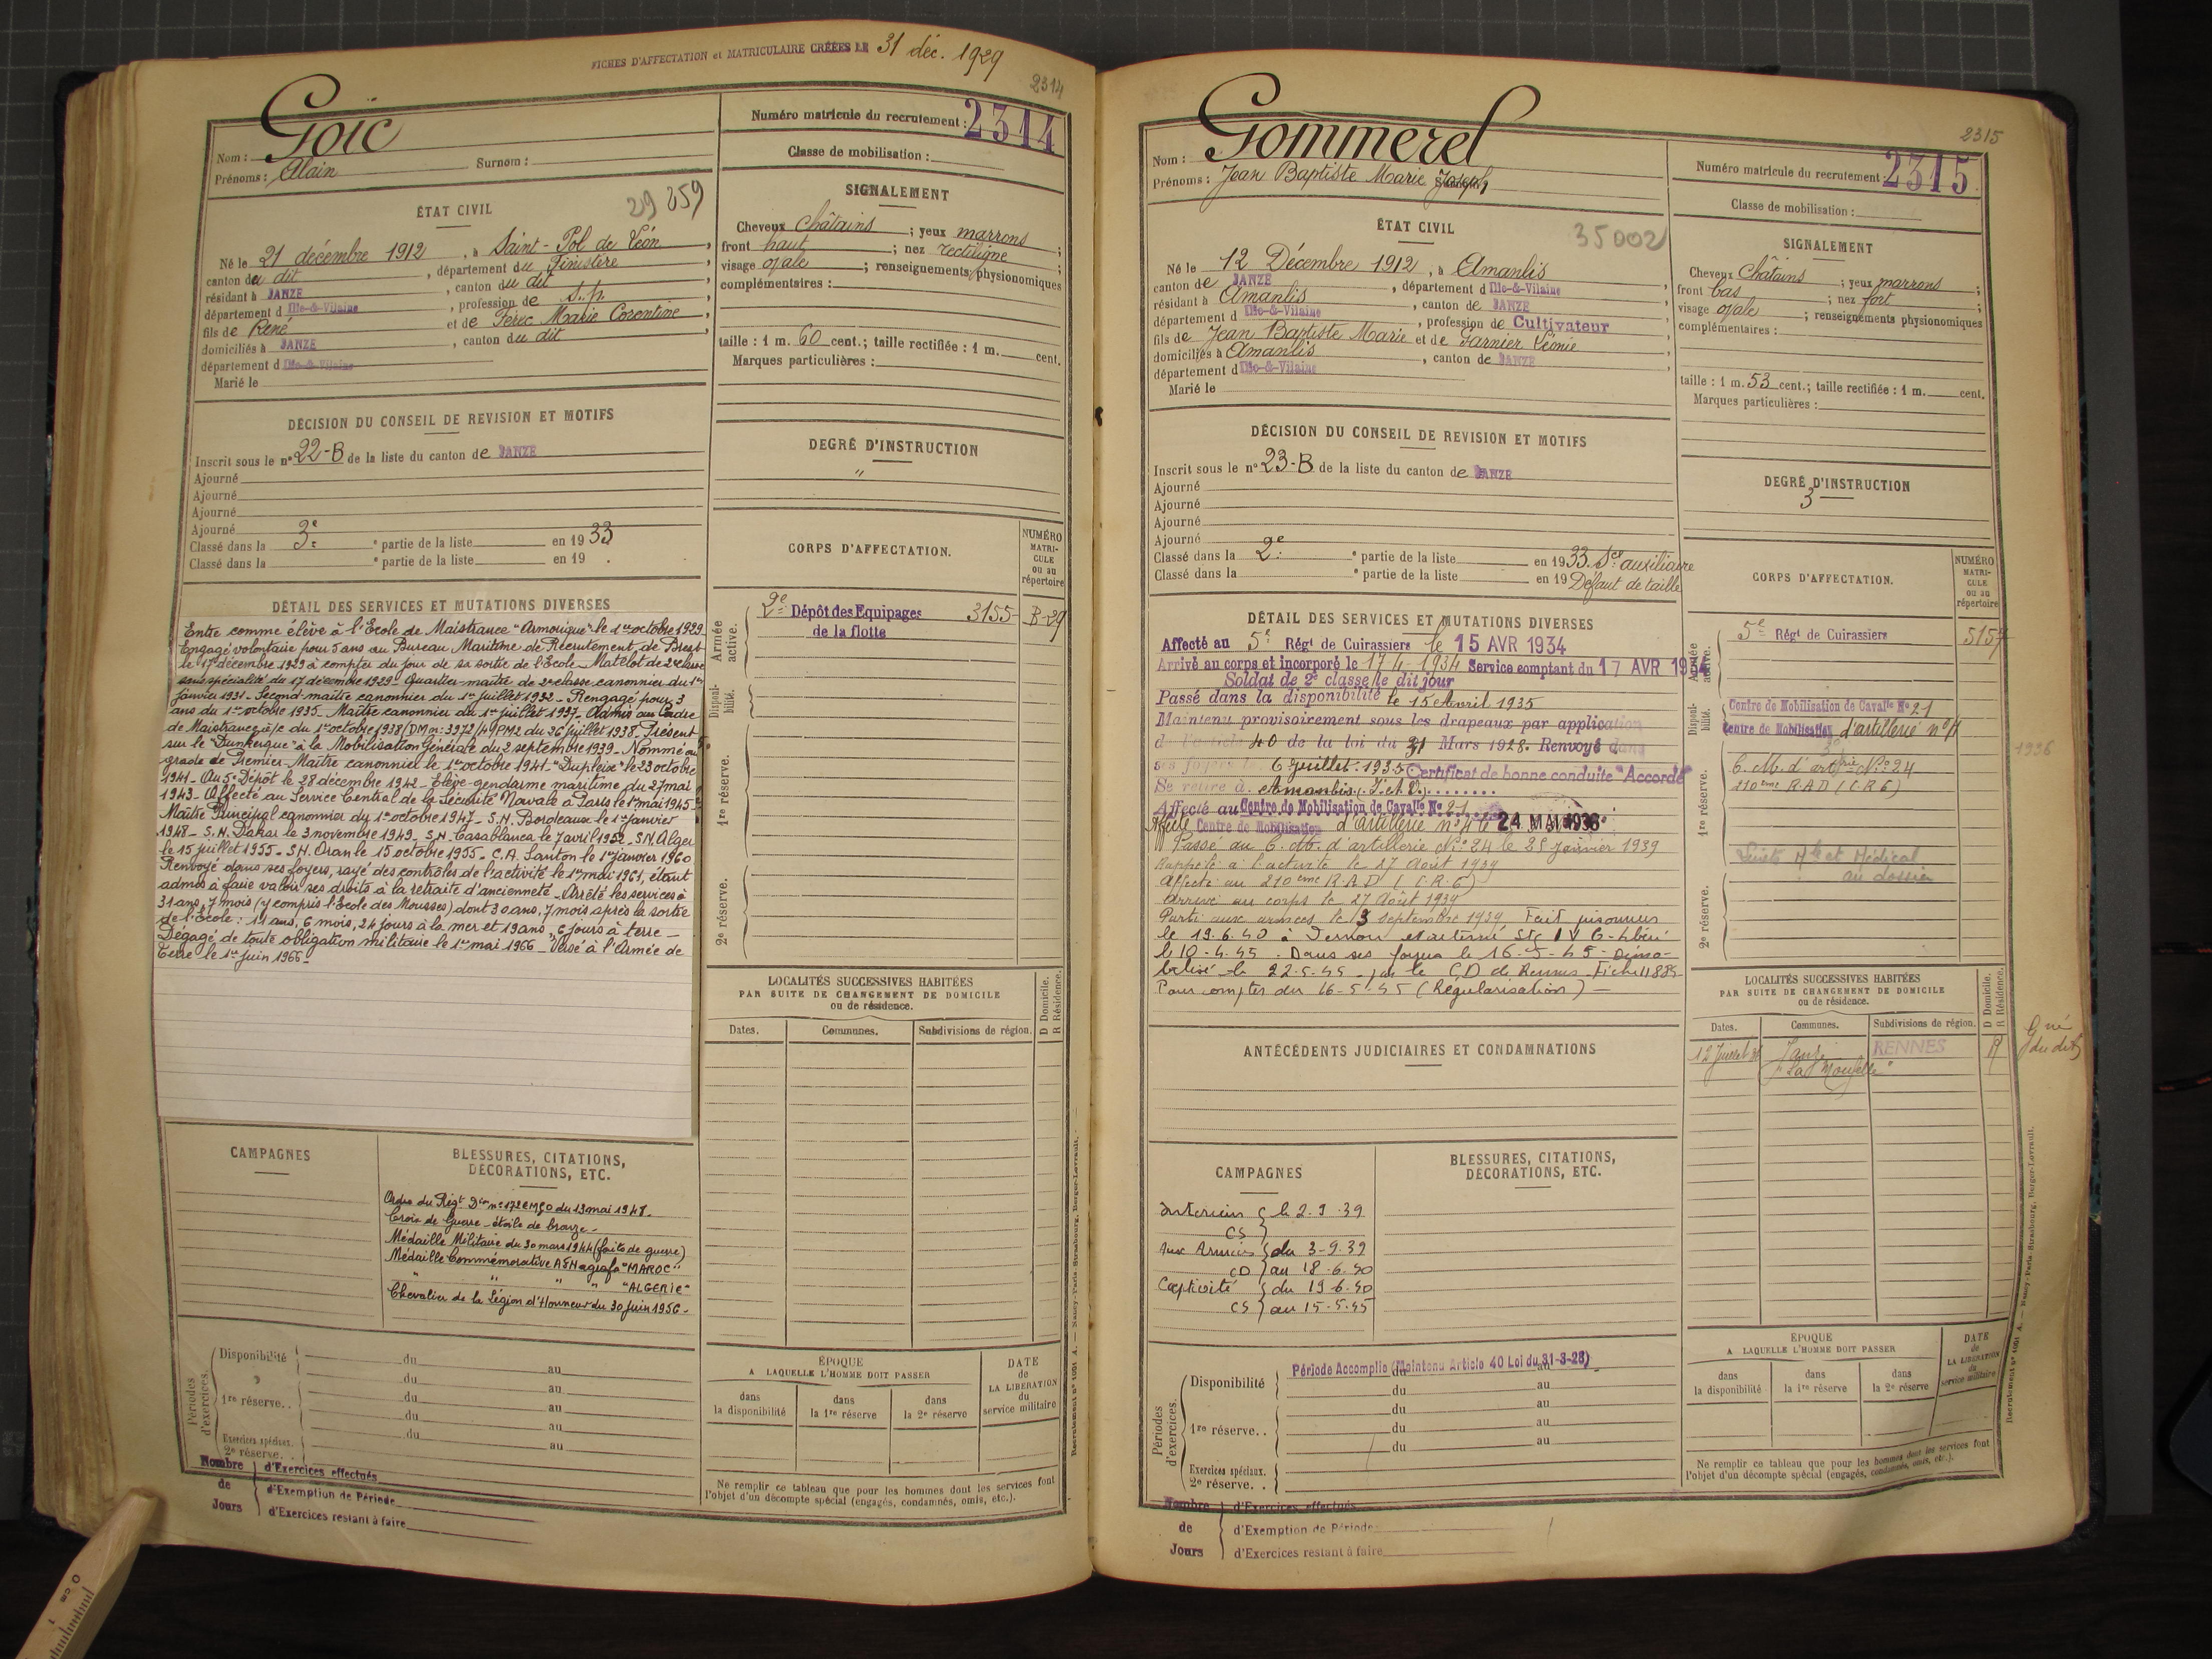 FICHES D'AFFECTATION et MATRICULAIRE CRÉÉES LE 31 déc. 1929
2314
Nom : Goïc
Prénoms : Alain Surnom :
Numéro matricule du recrutement : 2314
Classe de mobilisation :
ÉTAT CIVIL
29 259
Né le 21 décembre 1912, à Saint-Pol de Léon,
canton du dit, département du Finistère,
résidant à JANZE, canton du dit,
département d Ille-&-Vilaine, profession de s.p.,
fils de René et de Férec Marie Corentine,
domiciliés à JANZE, canton du dit,
département d Ille-&-Vilaine
Marié le
SIGNALEMENT
Cheveux châtains ; yeux marrons ;
front haut ; nez rectiligne ;
visage ovale ; renseignements physionomiques
complémentaires :
taille : 1 m. 60 cent.; taille rectifiée : 1 m. cent.
Marques particulières :
DÉCISION DU CONSEIL DE REVISION ET MOTIFS
Inscrit sous le n° 22-B de la liste du canton de JANZE
Ajourné
Ajourné
Ajourné
Ajourné
Classé dans la 3e partie de la liste en 1933.
Classé dans la e partie de la liste en 19 .
DEGRÉ D'INSTRUCTION
"
CORPS D'AFFECTATION.
NUMÉRO MATRICULE ou au répertoire
DÉTAIL DES SERVICES ET MUTATIONS DIVERSES
Entre comme élève à l'Ecole de Maistrance "Armorique" le 1er octobre 1929
Engagé volontaire pour 5 ans au Bureau Maritime de Recrutement de Brest
le 17 décembre 1929 à compter du jour de sa sortie de l'Ecole - Matelot de 2e classe
sans spécialité du 17 décembre 1929 - Quartier-maître de 2e classe canonnier du 1er
janvier 1931 - Second-maître canonnier du 1er juillet 1932 - Rengagé pour 3
ans du 1er octobre 1935 - Maître canonnier du 1er juillet 1937 - Admis au Cadre
de Maistrance à/c du 1er octobre 1938 (DM n: 3972/4 PM2 du 26 juillet 1938 - Présent
sur le "Dunkerque" à la Mobilisation Générale du 2 septembre 1939 - Nommé au
grade de Premier-Maître canonnier le 1er octobre 1941 - "Dupleix" le 23 octobre
1941 - Au 5e Dépôt le 28 décembre 1942 - Elève-gendarme maritime du 27 mai
1943 - Affecté au Service Central de la Sécurité Navale à Paris le 1er mai 1945 -
Maître Principal canonnier du 1er octobre 1947 - S.N. Bordeaux le 1er janvier
1948 - S.N. Dakar le 3 novembre 1949 - S.N. Casablanca le 7 avril 1952 - S.N. Alger
le 15 juillet 1955 - S.N. Oran le 15 octobre 1955 - C.A. Sarton le 1er janvier 1960
Renvoyé dans ses foyers, rayé des contrôles de l'activité le 1er mai 1961, étant
admis à faire valoir ses droits à la retraite d'ancienneté - Arrêté les services à
31 ans, 7 mois (y compris l'Ecole des Mousses) dont 30 ans, 7 mois après la sortie
de l'Ecole : 11 ans, 6 mois, 24 jours à la mer et 19 ans, 6 jours à terre -
Dégagé de toute obligation militaire le 1er mai 1966 - Versé à l'Armée de
Terre le 1er juin 1966 -
Armée active. 2e Dépôt des Equipages 3155- B-29
de la flotte
Disponibilité.
1re réserve.
2e réserve.
LOCALITÉS SUCCESSIVES HABITÉES
PAR SUITE DE CHANGEMENT DE DOMICILE
ou de résidence.
D Domicile. R Résidence.
Dates. Communes. Subdivisions de région.
CAMPAGNES
BLESSURES, CITATIONS, DÉCORATIONS, ETC.
Ordre du Régt Don n: 172 EMGO du 13 mai 1948 -
Croix de Guerre - étoile de bronze -
Médaille Militaire du 30 mars 1944 (faits de guerre)
Médaille Commémorative AFN agrafe "MAROC"
" " " " "ALGERIE"
Chevalier de la Légion d'Honneur du 30 juin 1956 -
Périodes d'exercices.
Disponibilité du au
du au
1re réserve.. du au
du au
du au
Exercices spéciaux.
2e réserve.
Nombre de Jours
d'Exercices effectués
d'Exemption de Période
d'Exercices restant à faire
ÉPOQUE
A LAQUELLE L'HOMME DOIT PASSER
dans la disponibilité
dans la 1re réserve
dans la 2e réserve
DATE de LA LIBÉRATION du service militaire
Ne remplir ce tableau que pour les hommes dont les services font
l'objet d'un décompte spécial (engagés, condamnés, omis, etc.).
Recrutement n° 1051 A. — Nancy-Paris-Strasbourg, Berger-Levrault. —
2315
Nom : Gommerel
Prénoms : Jean Baptiste Marie Joseph
Numéro matricule du recrutement : 2315
Classe de mobilisation :
ÉTAT CIVIL
35002
Né le 12 Décembre 1912, à Amanlis
canton de JANZE, département d Ille-&-Vilaine
résidant à Amanlis, canton de JANZE,
département d Ille-&-Vilaine, profession de Cultivateur
fils de Jean Baptiste Marie et de Farnier Léonie,
domiciliés à Amanlis, canton de JANZE,
département d Ille-&-Vilaine
Marié le
SIGNALEMENT
Cheveux Châtains ; yeux marrons ;
front bas ; nez fort ;
visage ovale ; renseignements physionomiques
complémentaires :
taille : 1 m. 53 cent.; taille rectifiée : 1 m. cent.
Marques particulières :
DÉCISION DU CONSEIL DE REVISION ET MOTIFS
Inscrit sous le n° 23-B de la liste du canton de JANZE
Ajourné
Ajourné
Ajourné
Ajourné
Classé dans la 2e partie de la liste en 1933. Sce auxiliaire
Classé dans la e partie de la liste en 19 Défaut de taille
DEGRÉ D'INSTRUCTION
3
CORPS D'AFFECTATION.
NUMÉRO MATRICULE ou au répertoire
DÉTAIL DES SERVICES ET MUTATIONS DIVERSES
Affecté au 5e Régt de Cuirassiers le 15 AVR 1934
Arrivé au corps et incorporé le 17-4-1934 Service comptant du 17 AVR 1934
Soldat de 2e classe le dit jour
Passé dans la disponibilité le 15 Avril 1935
Maintenu provisoirement sous les drapeaux par application
de l'article 40 de la loi du 31 Mars 1928. Renvoyé dans
ses foyers le 6 juillet 1935 Certificat de bonne conduite "Accordé"
Se retire à Amanlis (I. et V.)
Affecté au Centre de Mobilisation de Cavalie No 21
Affecté Centre de Mobilisation d'artillerie n° 4 le 24 MAI 1936
Passé au C. M. d'artillerie N° 24 le 25 Janvier 1939
Rappelé à l'activité le 27 Août 1939
Affecté au 210ème R.A.D (C.R.6)
Arrivé au corps le 27 Août 1939
Parti aux armées le 3 septembre 1939 Fait prisonnier
le 19.6.40 à Vernon et interné Stg IV G - Libéré
le 10-4-45. Dans ses foyers le 16-5-45 - Démo-
bilisé le 22-5-45 par le C.D de Rennes - Fiche 11885
Pour compter du 16-5-45 (Régularisation) —
Armée active. 5e Régt de Cuirassiers 5157
Disponibilité. Centre de Mobilisation de Cavalie No 21
Centre de Mobilisation d'artillerie n° 4
1936
1re réserve. C. M. d'artrie N° 24
210ème R.A.D (C.R.6)
2e réserve.
au dossier
ANTÉCÉDENTS JUDICIAIRES ET CONDAMNATIONS
LOCALITÉS SUCCESSIVES HABITÉES
PAR SUITE DE CHANGEMENT DE DOMICILE
ou de résidence.
D Domicile. R Résidence.
Dates. Communes. Subdivisions de région.
12 Juillet Janzé RENNES R
du dit
CAMPAGNES
BLESSURES, CITATIONS, DÉCORATIONS, ETC.
Intérieur { le 2.9.39
CS }
Aux Armées { du 3-9-39
CD } au 18.6.40
Captivité { du 19-6-40
CS } au 15-5-45
Périodes d'exercices.
Période Accomplie (Maintenu Article 40 Loi du 31-3-28)
Disponibilité du au
du au
1re réserve.. du au
du au
du au
Exercices spéciaux.
2e réserve..
Nombre de Jours
d'Exercices effectués
d'Exemption de Période
d'Exercices restant à faire
ÉPOQUE
A LAQUELLE L'HOMME DOIT PASSER
dans la disponibilité
dans la 1re réserve
dans la 2e réserve
DATE de LA LIBÉRATION du service militaire
Ne remplir ce tableau que pour les hommes dont les services font
l'objet d'un décompte spécial (engagés, condamnés, omis, etc.).
Recrutement n° 1051 A. — Nancy-Paris-Strasbourg, Berger-Levrault.